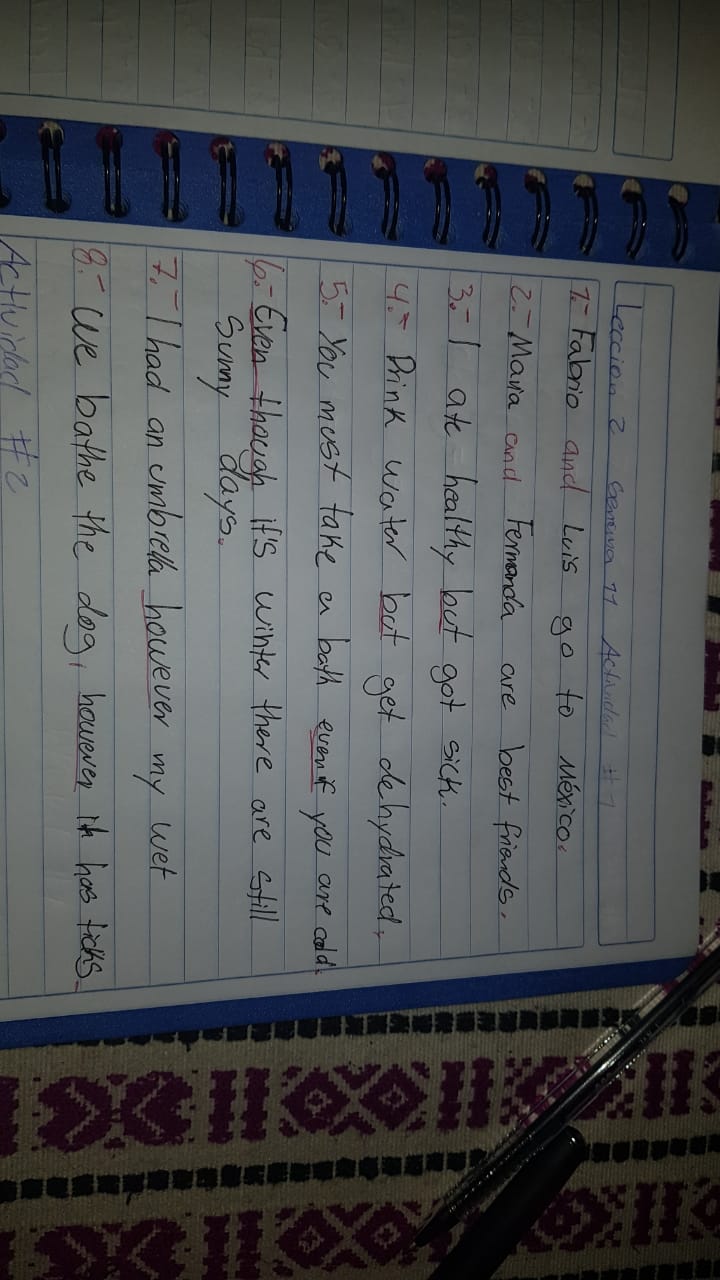 Leccion 2 Semana 11 Actividad #1
1.- Fabrio and Luis go to México.
2.- Maria and Fernanda are best friends.
3.- I ate healthy but got sick.
4.- Drink water but get dehydrated.
5.- You must take a bath even if you are cold.
6.- Even though it's winter there are still
Sunny days.
7.- I had an umbrella however my wet
8.- We bathe the dog, however it has ticks.
Actividad #2